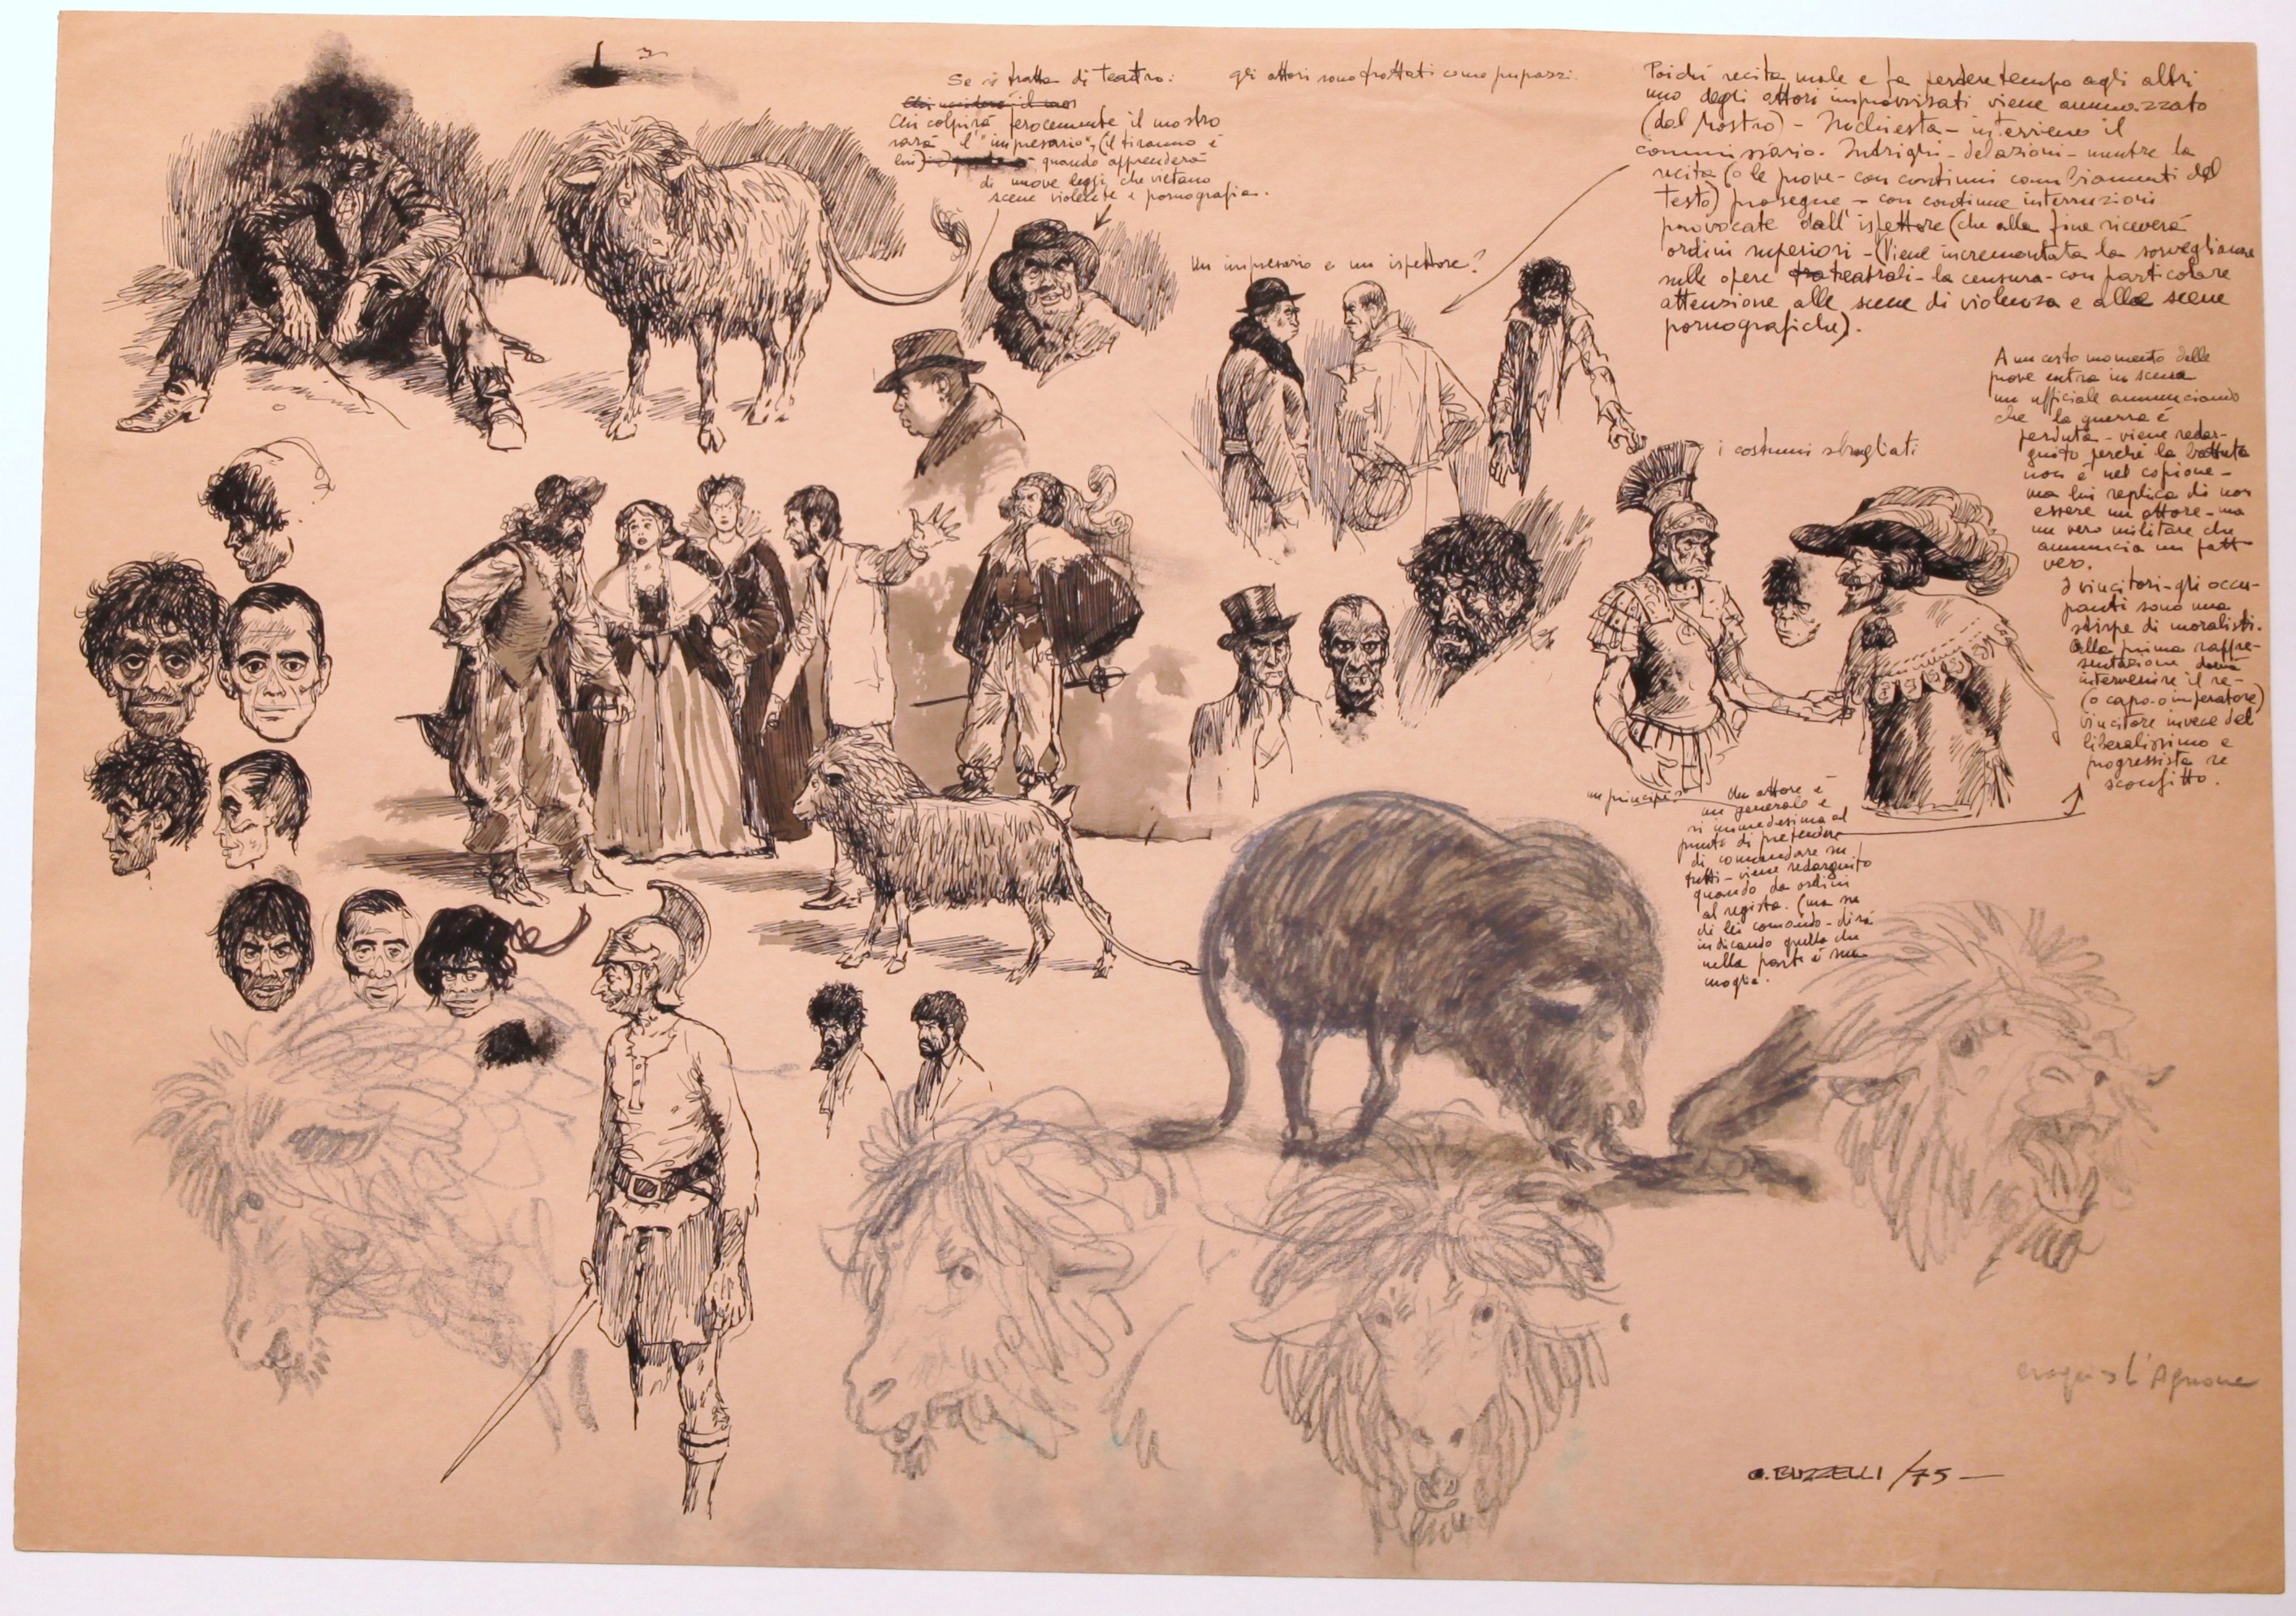 Se si tratta di teatro:
gli attori sono trattati come pupazzi.
Chi colpirà ferocemente il mostro
sarà l' "impresario", (il tiranno è
lui) quando apprenderà
di nuove leggi che vietano
scene violente e pornografia.
Poiché recita male e fa perdere tempo agli altri
uno degli attori improvvisati viene ammazzato
(dal Mostro) - Inchiesta - interviene il
commissario. Intrighi - delazioni - mentre la
recita (o le prove - con continui cambiamenti del
testo) prosegue - con continue interruzioni
provocate dall'ispettore (che alla fine riceverà
ordini superiori - (Viene incrementata la sorveglianza
sulle opere teatrali - la censura - con particolare
attenzione alle scene di violenza e alle scene
pornografiche).
Un impresario e un ispettore?
i costumi sbagliati
A un certo momento delle
prove entra in scena
un ufficiale annunciando
che la guerra è
perduta - viene redar-
guito perché la battuta
non è nel copione -
ma lui replica di non
essere un attore - ma
un vero militare che
annuncia un fatto
vero.
I vincitori - gli occu-
panti sono una
stirpe di moralisti.
Alla prima rappre-
sentazione dovrà
intervenire il re -
(o capo - o imperatore)
vincitore invece del
liberalissimo e
progressista re
sconfitto.
un principe?
Un attore è
un generale e
si immedesima al
punto di pretendere
di comandare su
tutti - viene redarguito
quando da ordini
al regista. (ma su
di lei comando - dirà
indicando quella che
nella parte è sua
moglie.
croquis L'Agnone
G. BUZZELLI /75 -